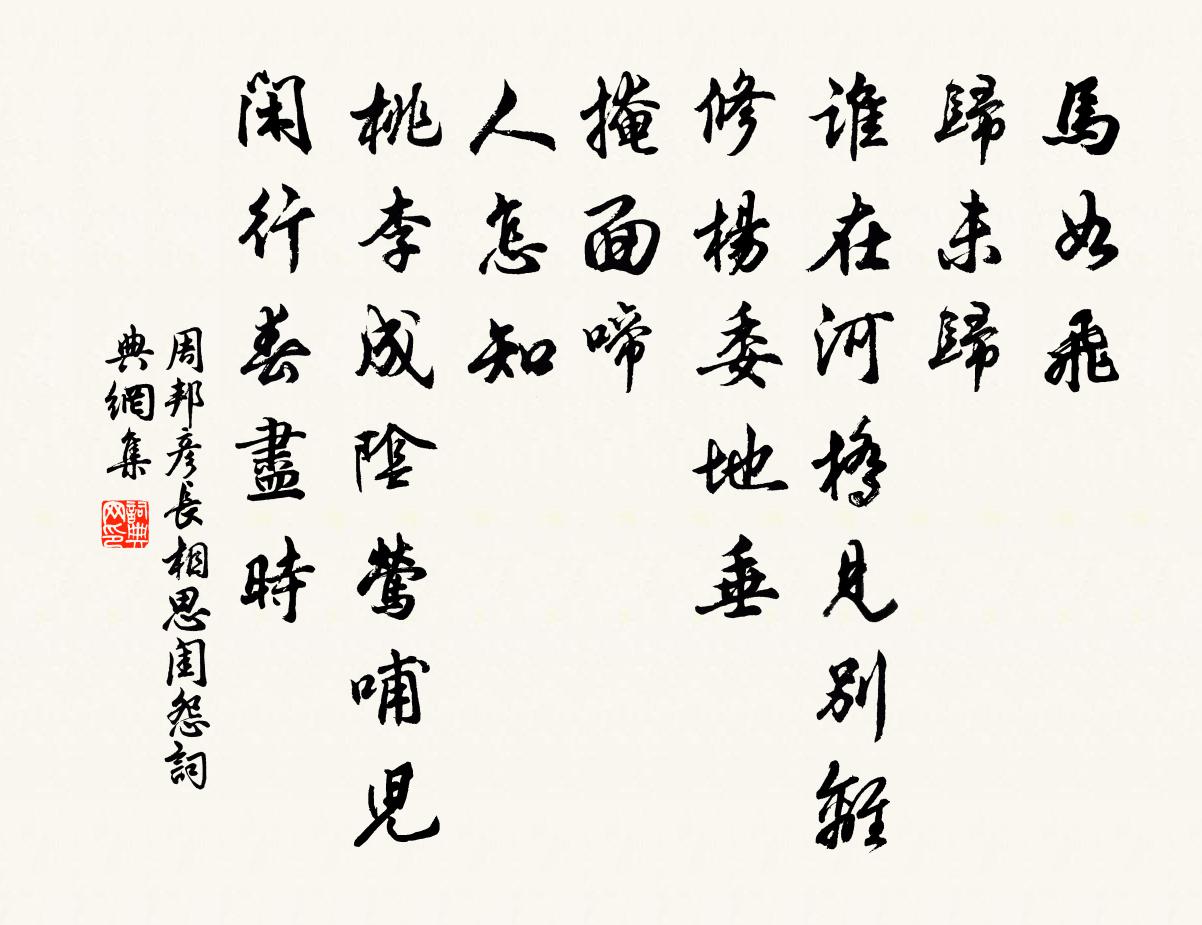 馬如飛
歸未歸
誰在河橋見別離
修楊委地垂
掩面啼
人怎知
桃李成陰鶯哺兒
閑行春盡時
周邦彥長相思閨怨詞
典網集
詞典网印